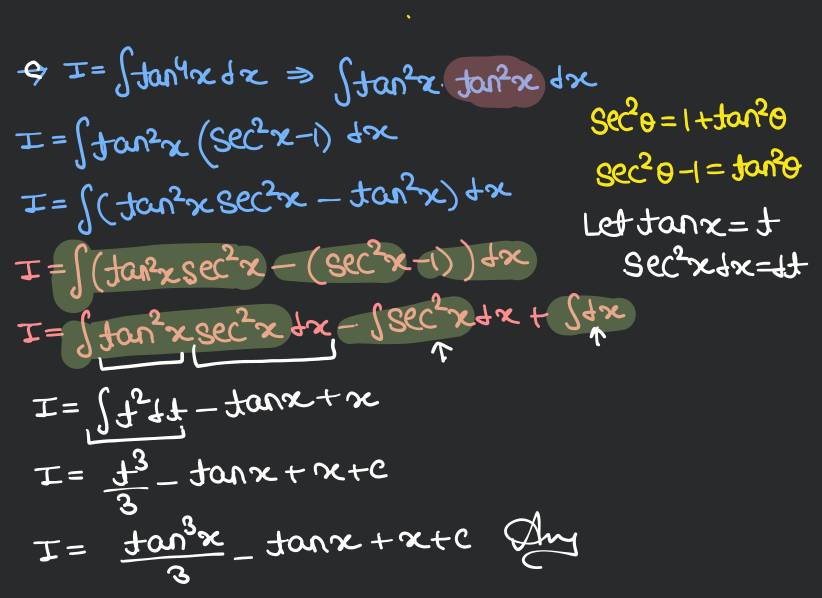 → Q I = ∫tan⁴x dx ⇒ ∫tan²x. tan²x dx
I = ∫tan²x (sec²x-1) dx
I = ∫(tan²x sec²x - tan²x) dx
I = ∫(tan²x sec²x - (sec²x-1)) dx
I = ∫tan²x sec²x dx - ∫sec²x dx + ∫dx
I = ∫t²dt - tanx + x
I = t³/3 - tanx + x + c
I = tan³x/3 - tanx + x + c Ans
sec²θ = 1 + tan²θ
sec²θ - 1 = tan²θ
Let tanx = t
sec²x dx = dt